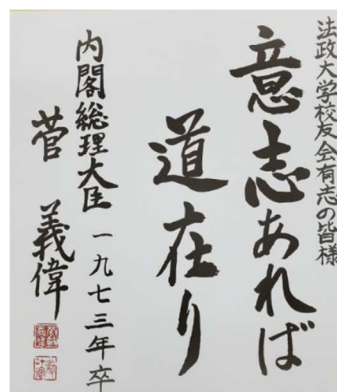 法政大学校友会有志の皆様
意志あれば
道在り
内閣総理大臣 一九七三年卒
菅 義偉